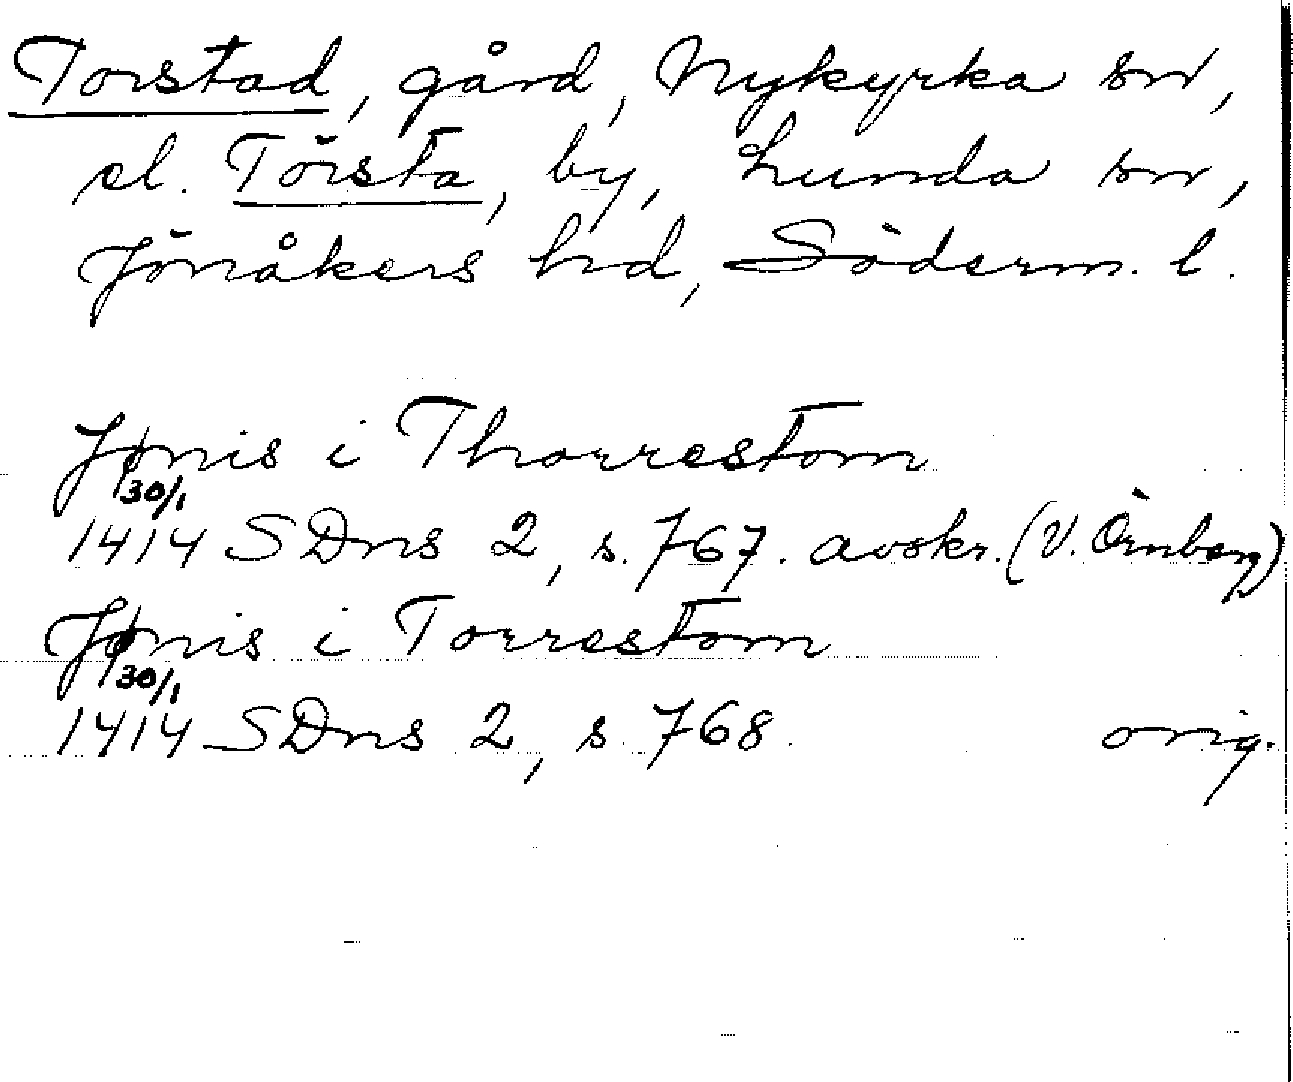 Torstad, gård, Nykyrka sn,
el. Törsta, by, Lunda sn,
Jönåkers hd, Söderm. l.
Jønis i Thorrestom
30/1
1414 SDns 2, s. 767. avskr. (V. Örnberg)
Jønis i Torrestom
30/1
1414 SDns 2, s. 768. orig.